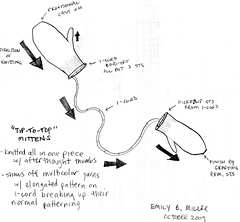 PROVISIONAL
CAST ON
DIRECTION
OF
KNITTING
I-CORD
BIND-OFF
ALL BUT 3 STS
I-CORD
PICK UP STS
FROM I-CORD
"TIP-TO-TOP"
MITTENS
- knitted all in one piece
w/ afterthought thumbs
- shows off multicolor yarns
w/ elongated pattern on
i-cord breaking up their
normal patterning
FINISH BY
GRAFTING
REM. STS
EMILY B. MILLER
OCTOBER 2009